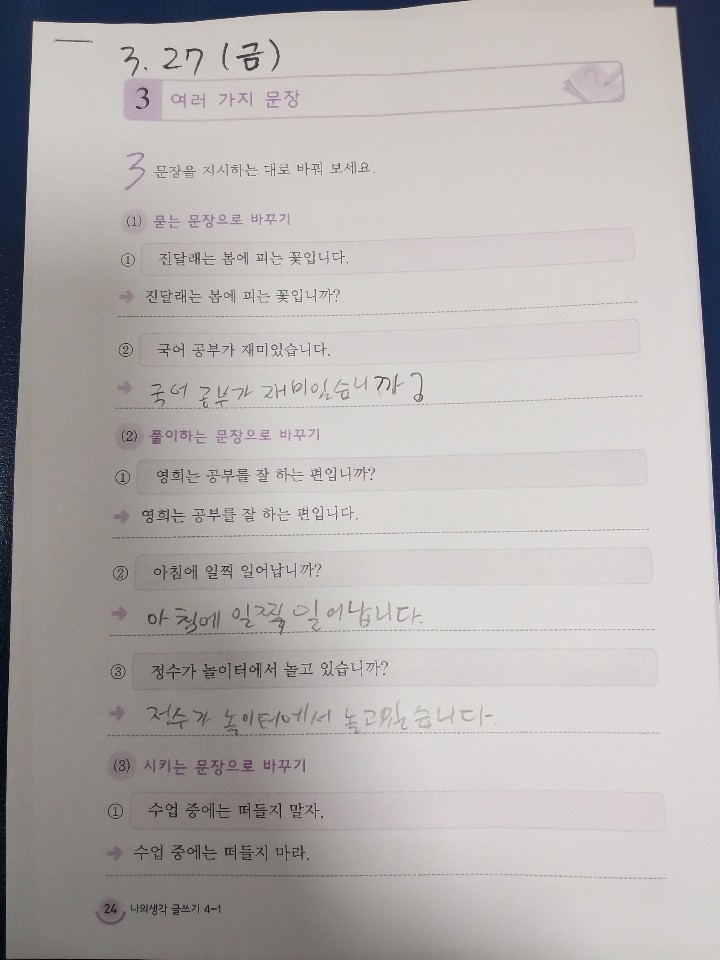 3. 27 (금)
3 여러 가지 문장
3 문장을 지시하는 대로 바꿔 보세요.
(1) 묻는 문장으로 바꾸기
① 진달래는 봄에 피는 꽃입니다.
➜ 진달래는 봄에 피는 꽃입니까?
② 국어 공부가 재미있습니다.
➜ 국어 공부가 재미있습니까?
(2) 풀이하는 문장으로 바꾸기
① 영희는 공부를 잘 하는 편입니까?
➜ 영희는 공부를 잘 하는 편입니다.
② 아침에 일찍 일어납니까?
➜ 아침에 일찍 일어납니다.
③ 정수가 놀이터에서 놀고 있습니까?
➜ 정수가 놀이터에서 놀고있습니다.
(3) 시키는 문장으로 바꾸기
① 수업 중에는 떠들지 말자.
➜ 수업 중에는 떠들지 마라.
24 나의생각 글쓰기 4-1